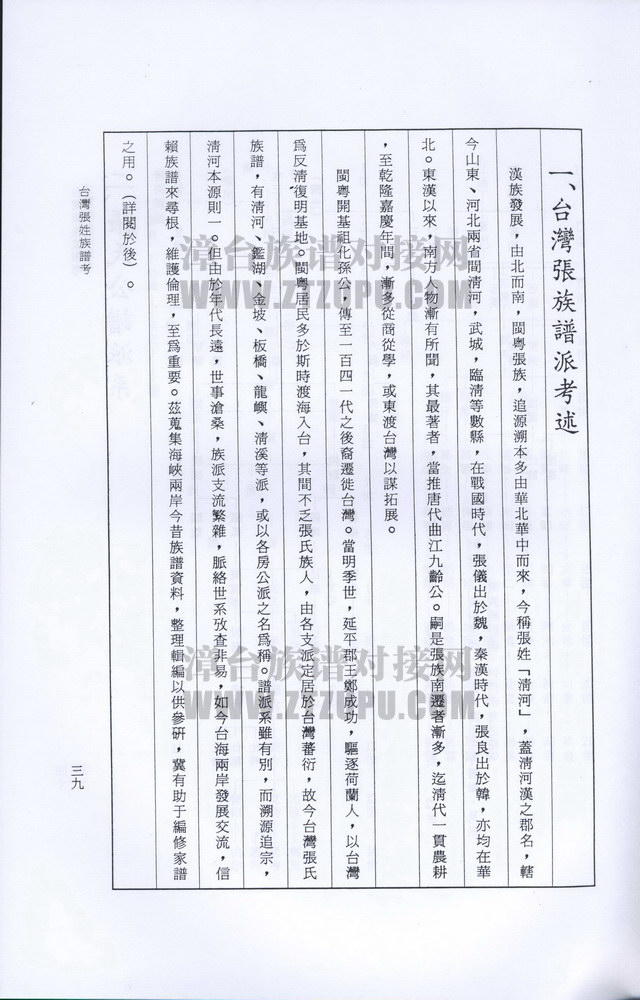 一、台灣張族譜派考述
漢族發展，由北而南，閩粵張族，追源溯本多由華北華中而來，今稱張姓「清河」，蓋清河漢之郡名，轄
今山東、河北兩省間清河，武城，臨清等數縣，在戰國時代，張儀出於魏，秦漢時代，張良出於韓，亦均在華
北。東漢以來，南方人物漸有所聞，其最著者，當推唐代曲江九齡公。嗣是張族南遷者漸多，迄清代一貫農耕
，至乾隆嘉慶年間，漸多從商從學，或東渡台灣以謀拓展。
閩粵開基祖化孫公，傳至一百四一代之後裔遷徙台灣。當明季世，延平郡王鄭成功，驅逐荷蘭人，以台灣
爲反清復明基地。閩粵居民多於斯時渡海入台，其間不乏張氏族人，由各支派定居於台灣蕃衍，故今台灣張氏
族譜，有清河、鑑湖、金坡、板橋、龍嶼、清溪等派，或以各房公派之名爲稱。譜派系雖有別，而溯源追宗，
清河本源則一。但由於年代長遠，世事滄桑，族派支流繁雜，脈絡世系攷查非易，如今台海兩岸發展交流，信
賴族譜來尋根，維護倫理，至爲重要。茲蒐集海峽兩岸今昔族譜資料，整理輯編以供參研，冀有助于編修家譜
之用。（詳閱於後）。
台灣張姓族譜考
三九
漳台族谱对接网
WWW.ZTZUPU.COM
漳台族谱对接网
WWW.ZTZUPU.COM